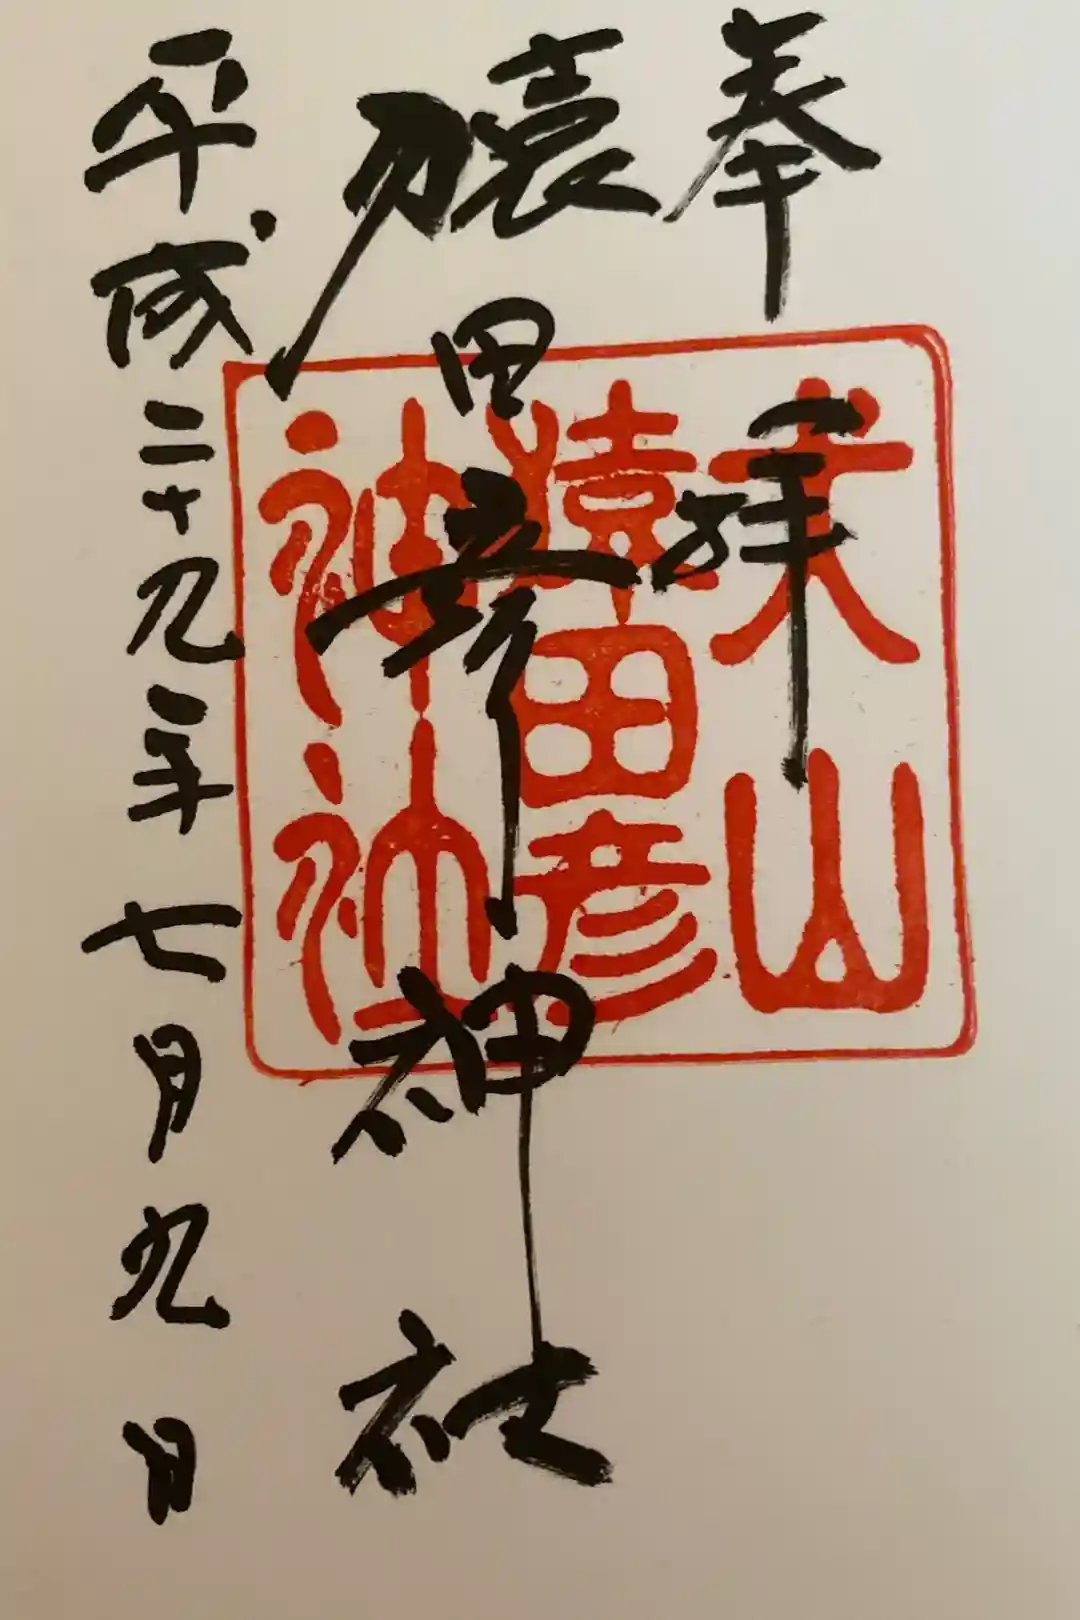 奉拝
猿田彦神社
平成二十九年七月九日
犬山
猿田彦
神社